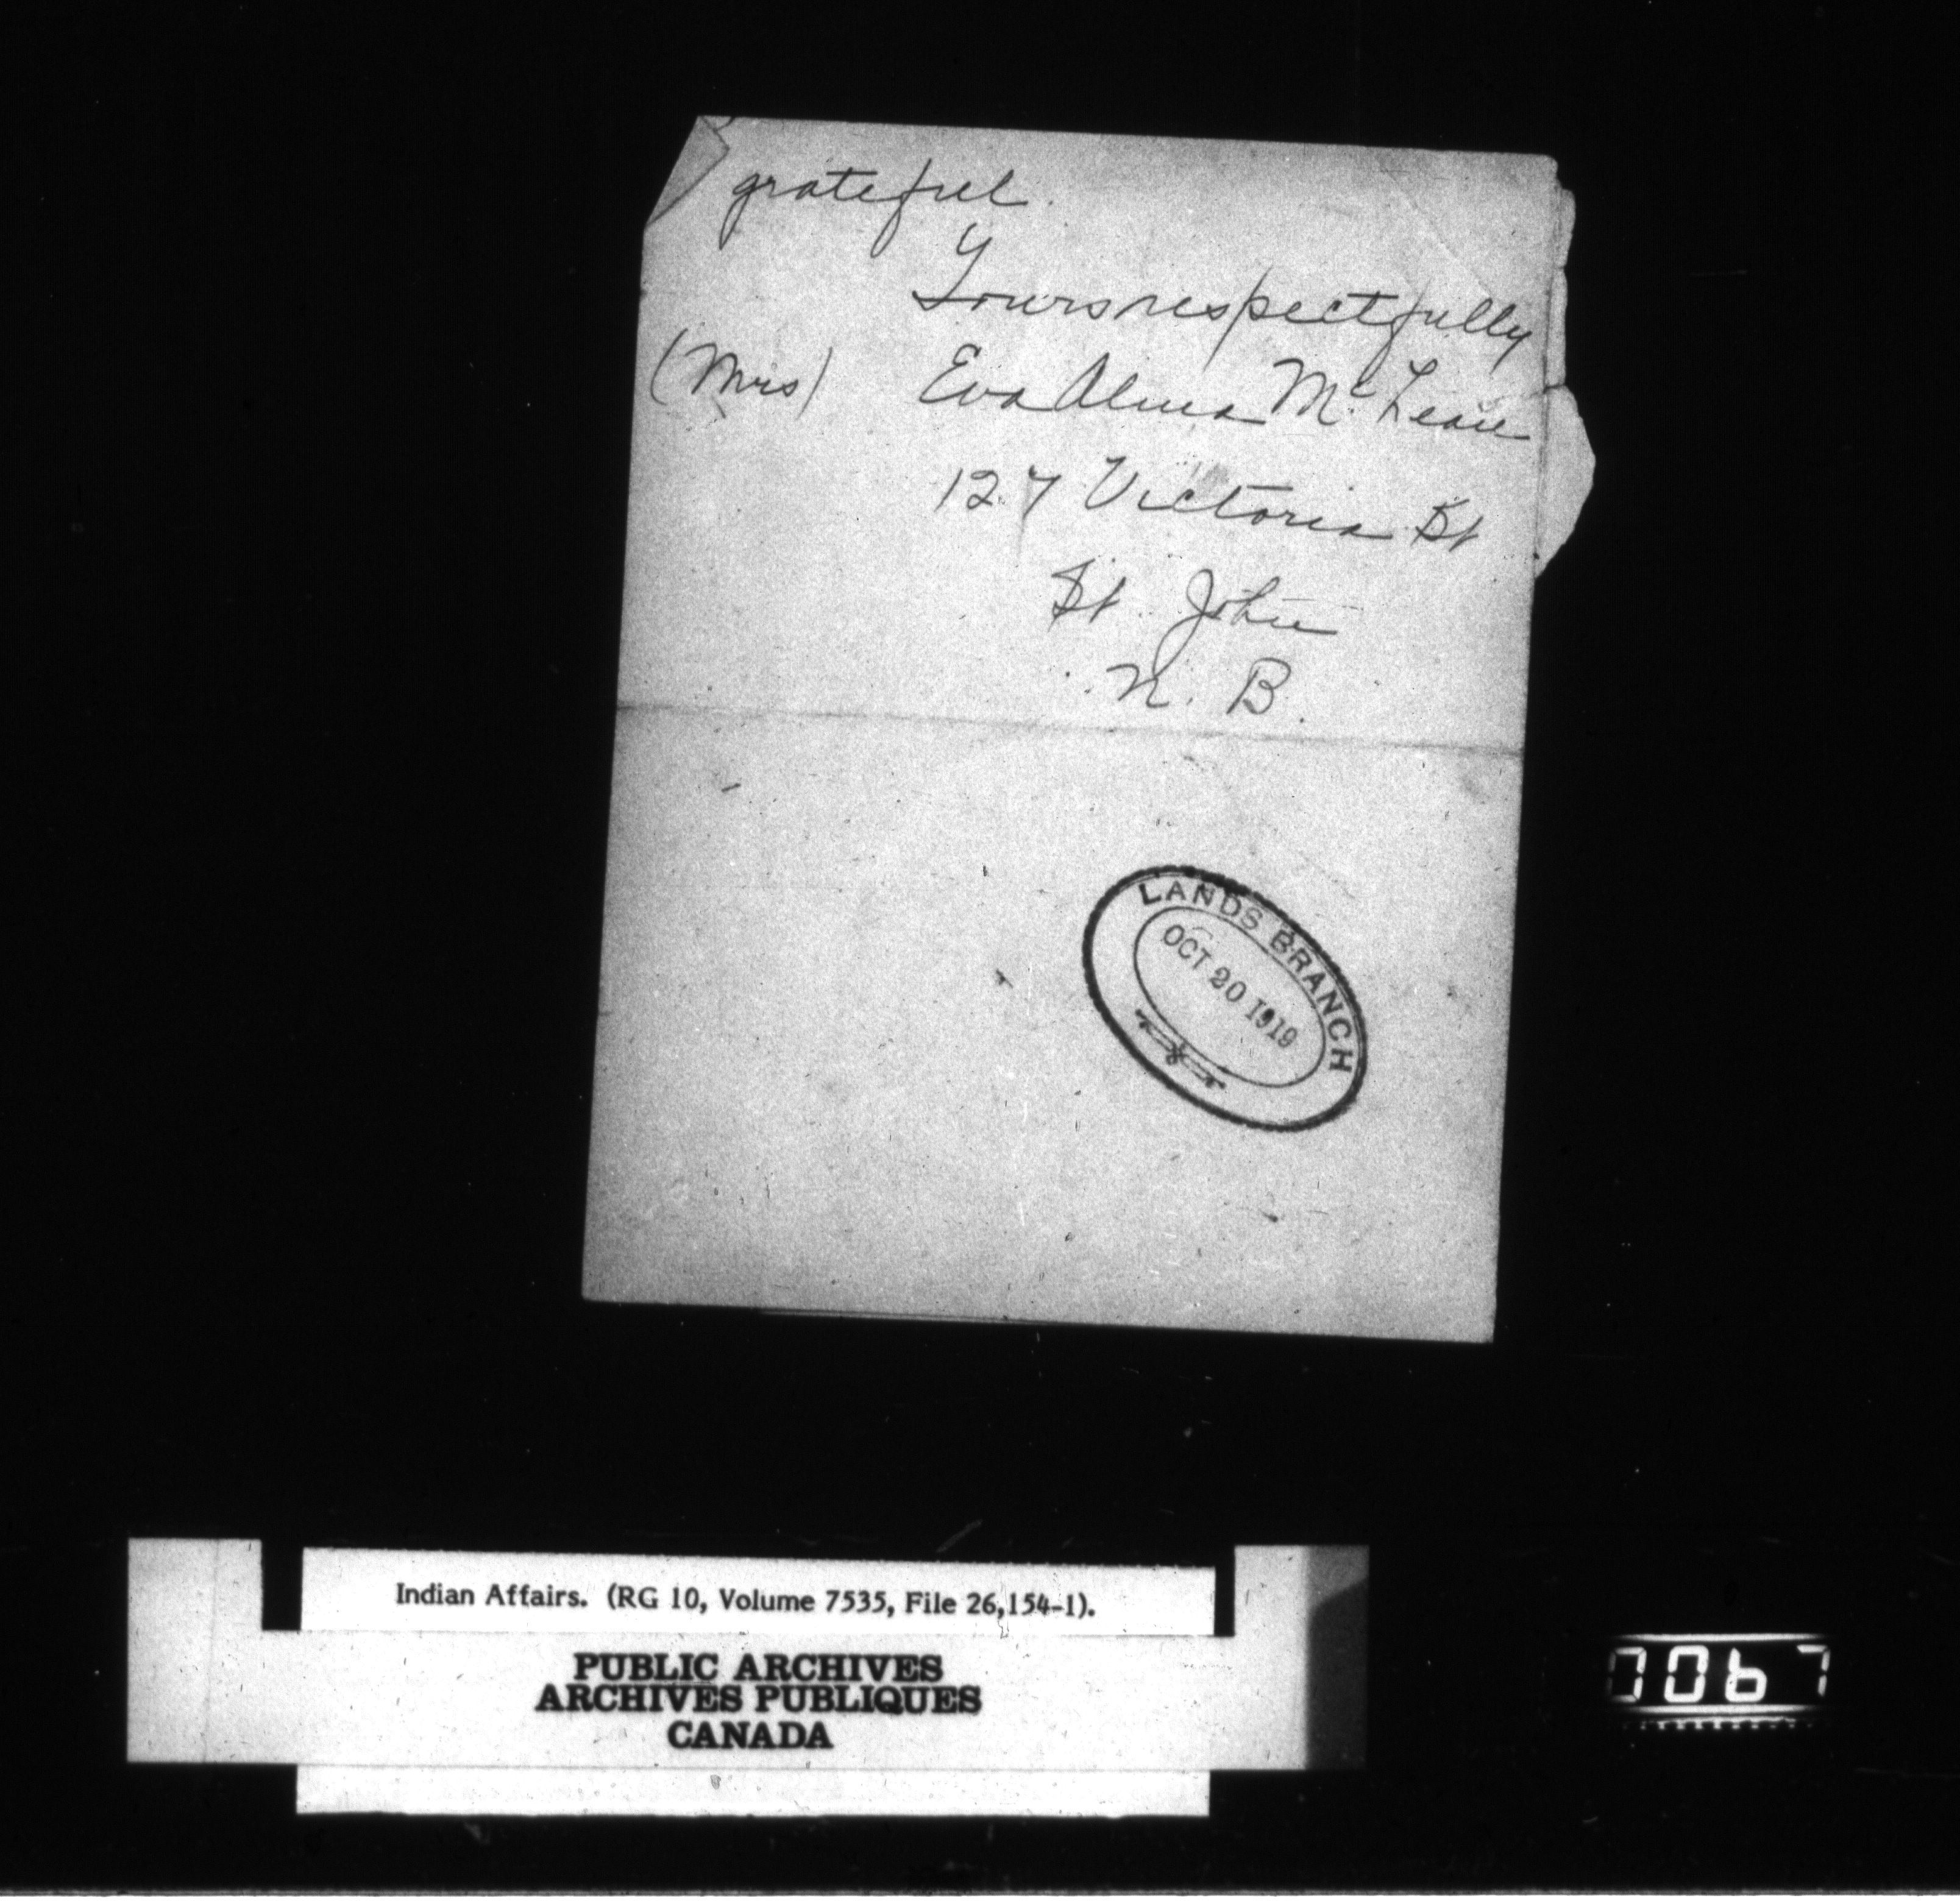 grateful.
Yours respectfully
(Mrs) Eva Alma McLean
127 Victoria St
St. John
N. B.
LANDS BRANCH
OCT 20 1919
Indian Affairs. (RG 10, Volume 7535, File 26,154-1).
PUBLIC ARCHIVES
ARCHIVES PUBLIQUES
CANADA
0067